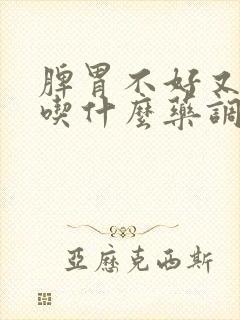 脾胃不好又
喫什麼藥調
亞歷克西斯